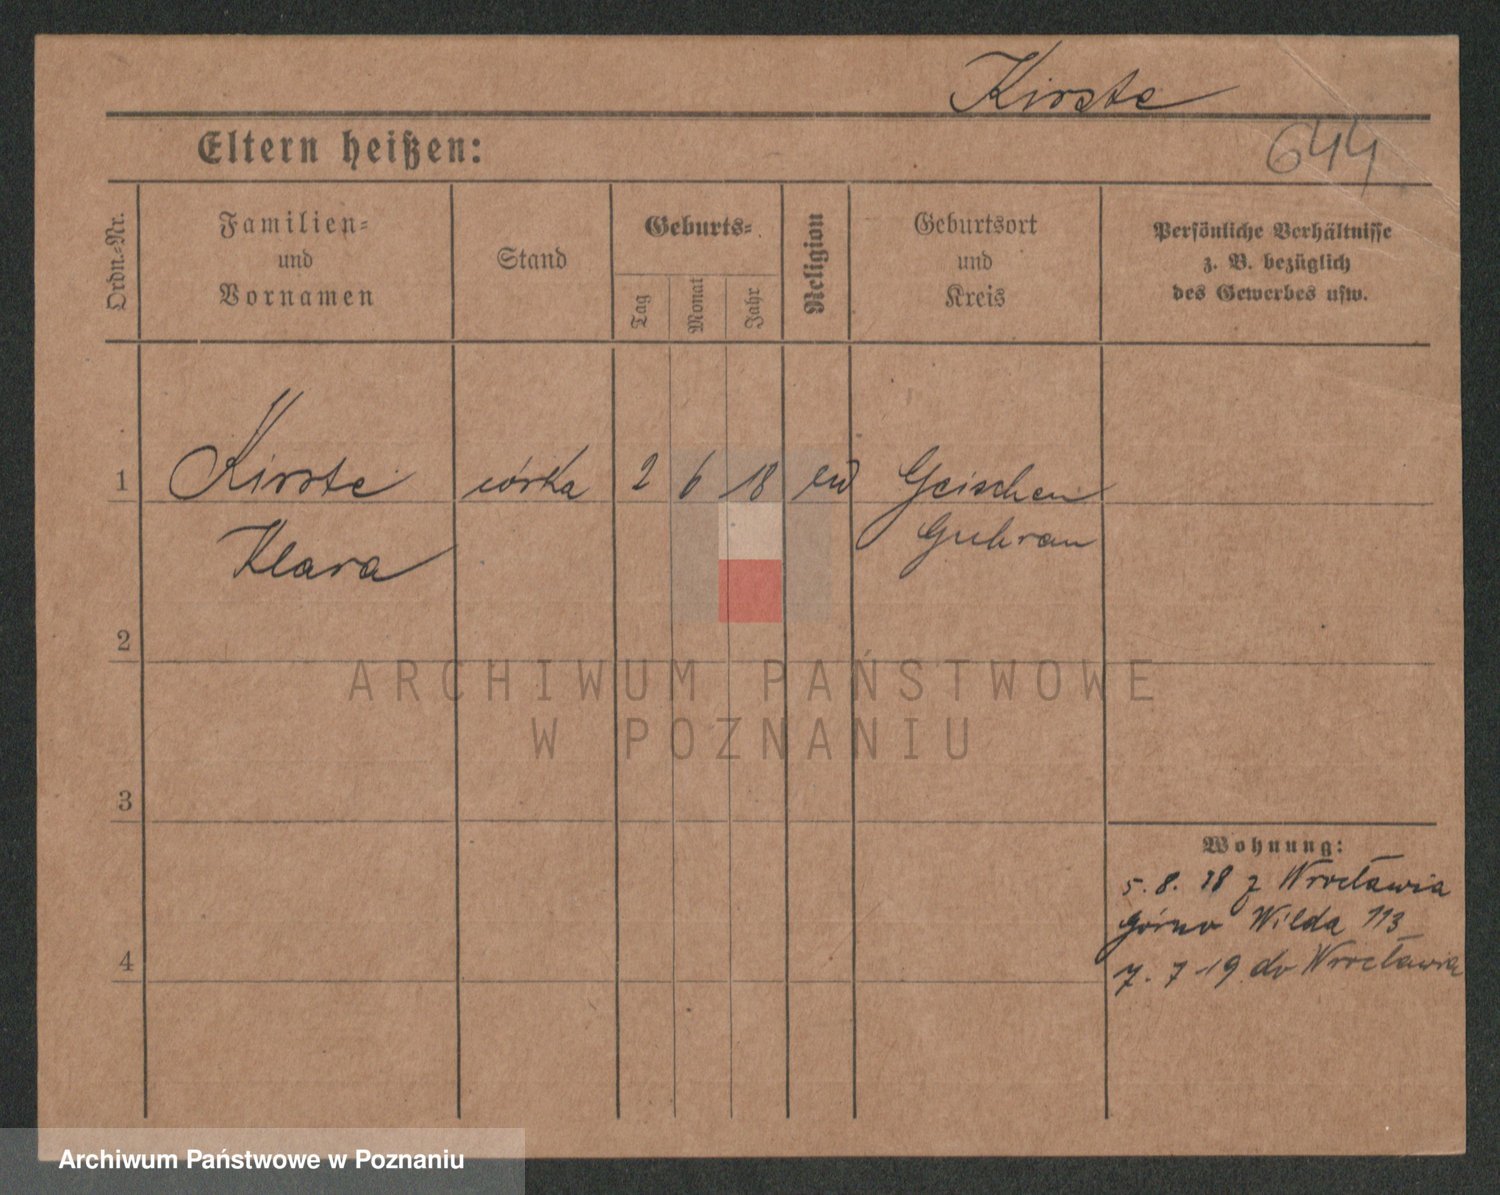 Kirste
644
Eltern heißen:
Ordn.-Nr.
Familien-
und
Vornamen
Stand
Geburts-
Tag
Monat
Jahr
Religion
Geburtsort
und
Kreis
Persönliche Verhältnisse
z. B. bezüglich
des Gewerbes usw.
1 Kirste córka 2 6 18 Geischen
Klara Guhrau
2
3
4
Wohnung:
5. 8. 18 z Wrocławia
Górna Wilda 113
7. 7 19 do Wrocławia
ARCHIWUM PAŃSTWOWE
W POZNANIU
Archiwum Państwowe w Poznaniu